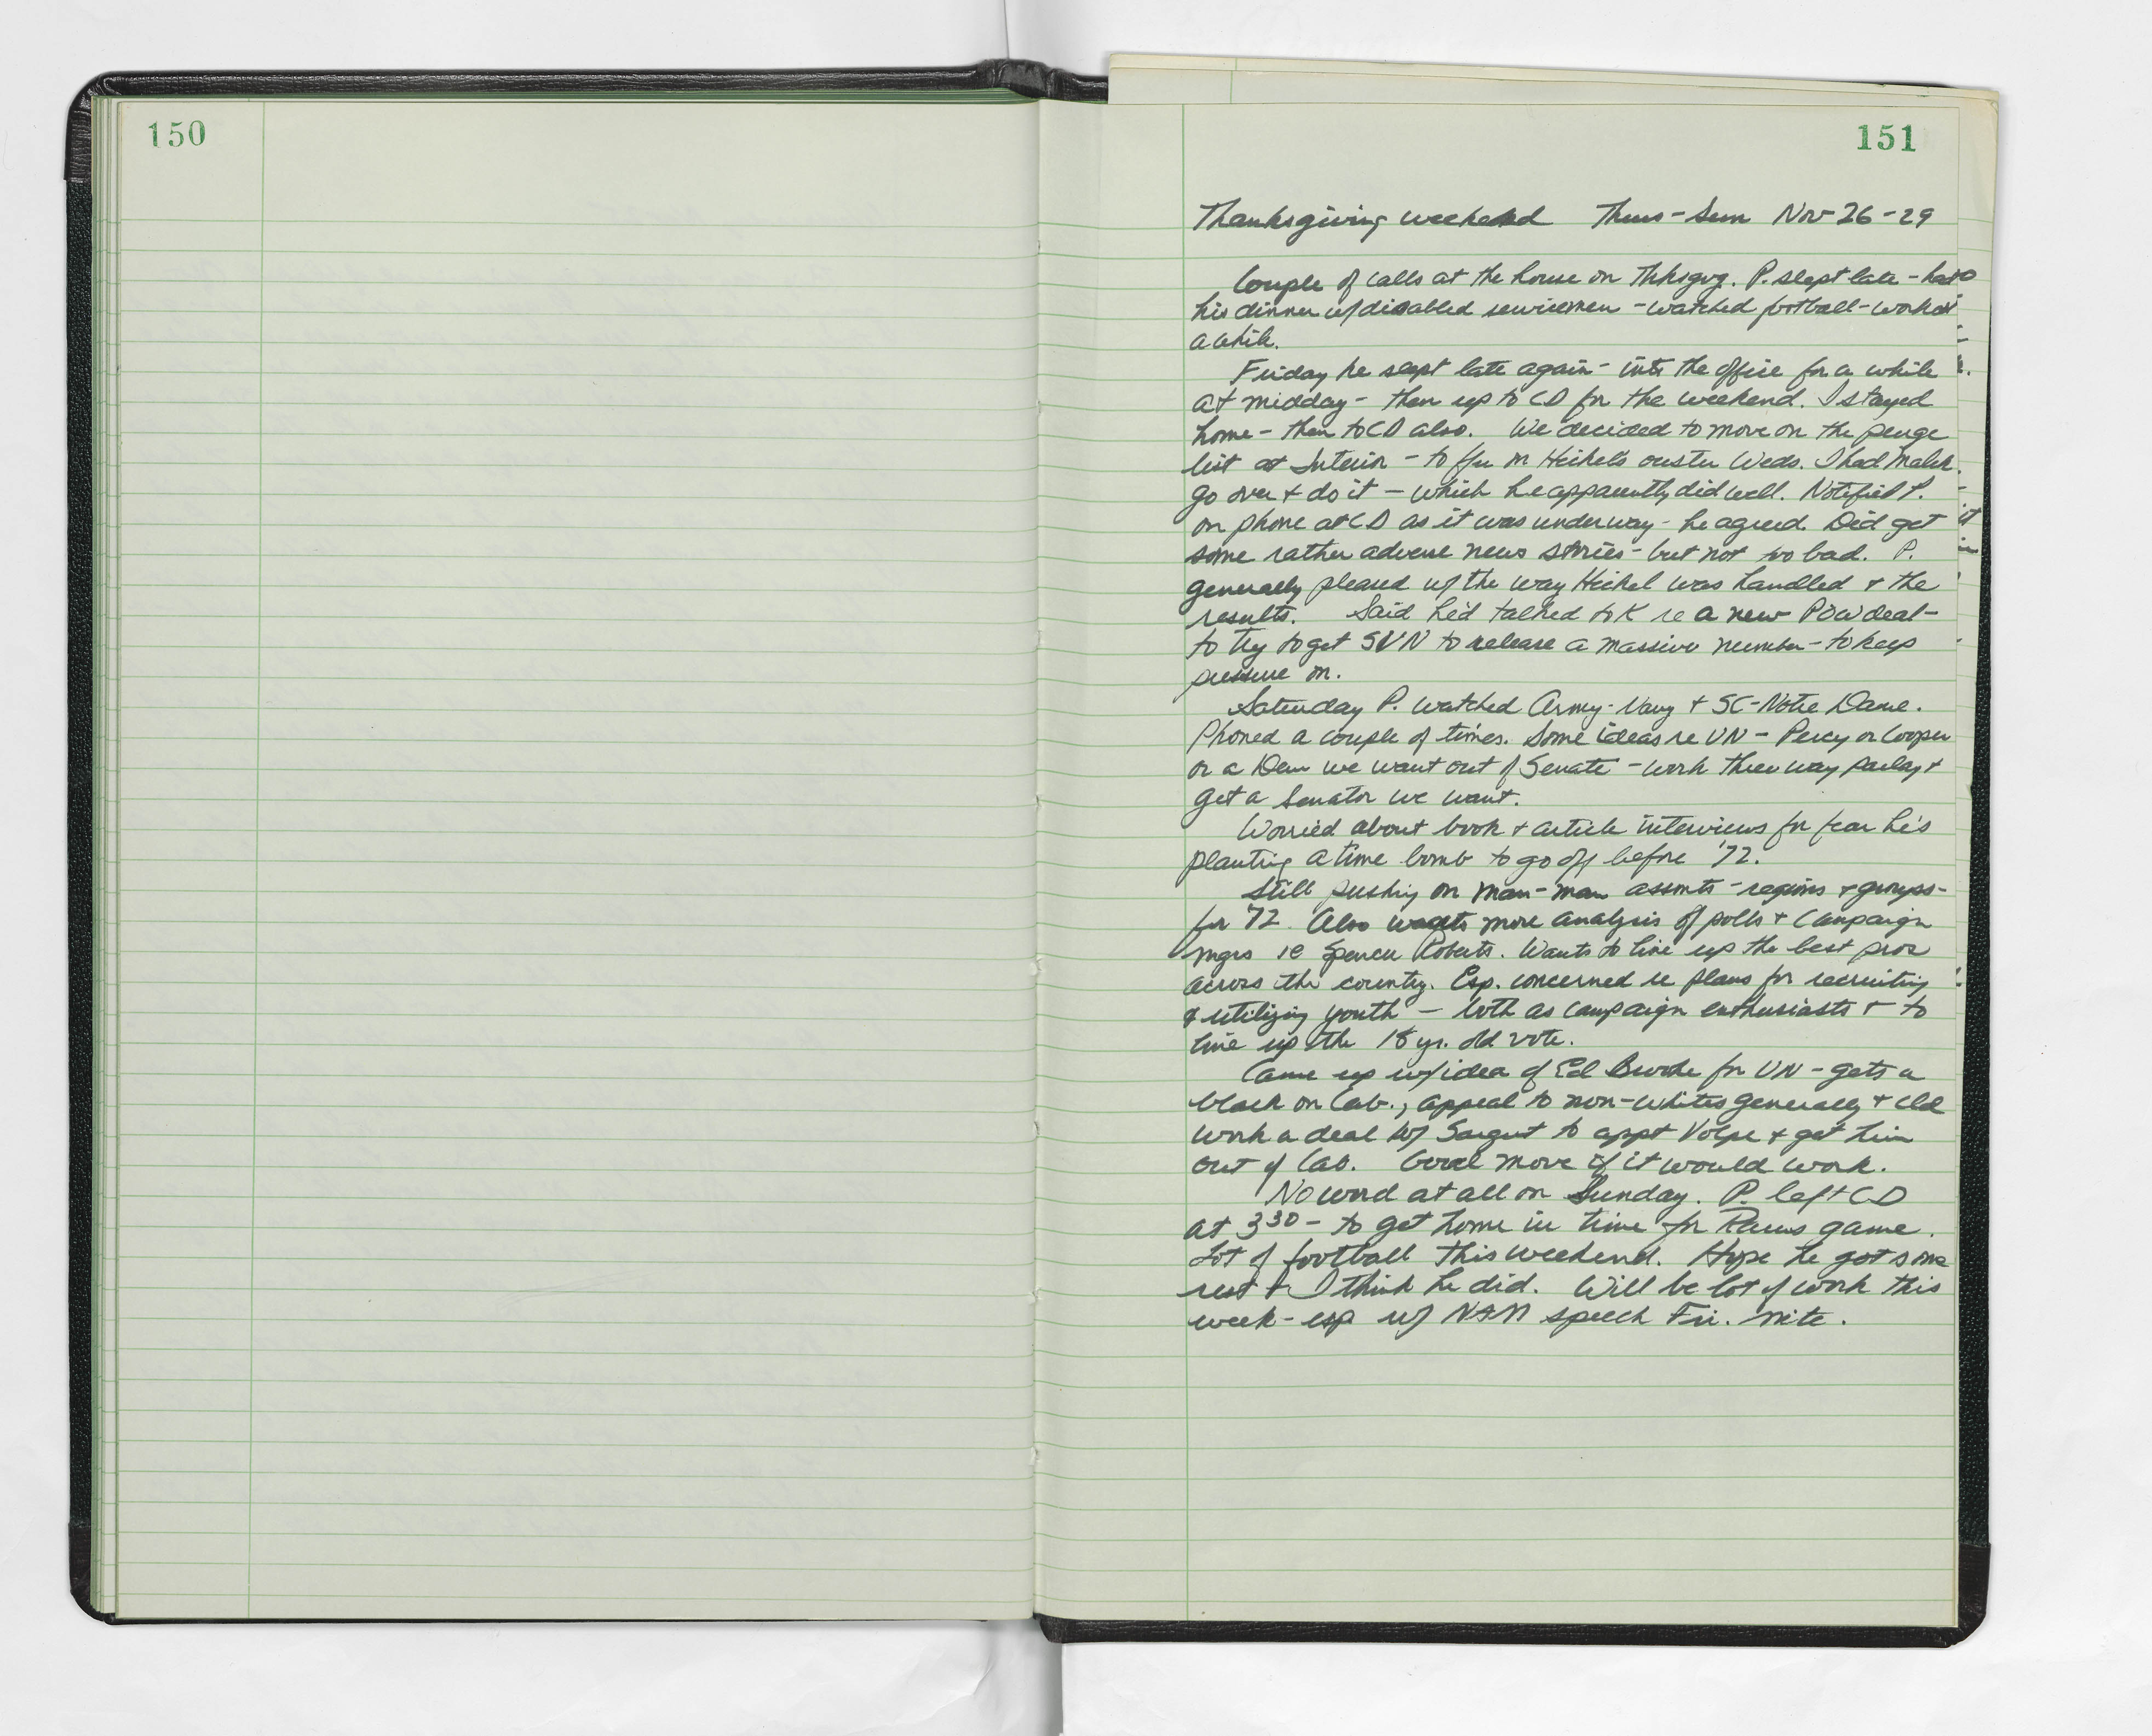 150
151
Thanksgiving weekend Thurs-Sun Nov 26-29
Couple of calls at the house on Thksgvg. P. slept late - had
his dinner w/disabled servicemen - watched football - worked
awhile.
Friday he slept late again - into the office for a while
at midday - then up to CD for the weekend. I stayed
home - then to CD also. We decided to move on the purge
list at Interior - to f/u on Hickel's ouster Weds. I had Malek
go over & do it - which he apparently did well. Notified P.
on phone at CD as it was underway - he agreed. Did get
some rather adverse news stories - but not so bad. P.
generally pleased w/ the way Hickel was handled & the
results. Said he'd talked to K re a new POW deal -
to try to get SVN to release a massive number - to keep
pressure on.
Saturday P. watched Army-Navy & SC-Notre Dame.
Phoned a couple of times. Some ideas re UN - Percy or Cooper
or a Dem we want out of Senate - work three way parlay &
get a Senator we want.
Worried about book & article interviews for fear he's
planting a time bomb to go off before '72.
Still pushing on man-man assmts - regions & groups -
for '72. Also wants more analysis of polls & campaign
mgrs ie Spencer Roberts. Wants to line up the best pros
across the country. Esp. concerned re plans for recruiting
& utilizing youth - both as campaign enthusiasts & to
line up the 18 yr. old vote.
Came up w/idea of Ed Brooke for UN - gets a
black on Cab., appeal to non-whites generally & cld
work a deal w/ Sargent to appt Volpe & get him
out of Cab. Good move if it would work.
No word at all on Sunday. P. left CD
at 3 30 - to get home in time for Rams game.
Lot of football this weekend. Hope he got some
rest & I think he did. Will be lot of work this
week - esp w/ NAM speech Fri. nite.